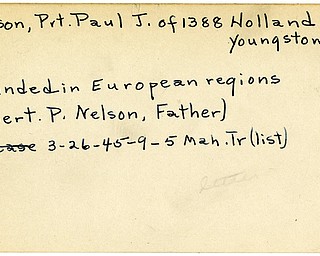 son, Prt. Paul J. of 1388 Holland
Youngston
nded in European regions
ert. P. Nelson, Father)
ease 3-26-45-9-5 Mah. Tr (list)